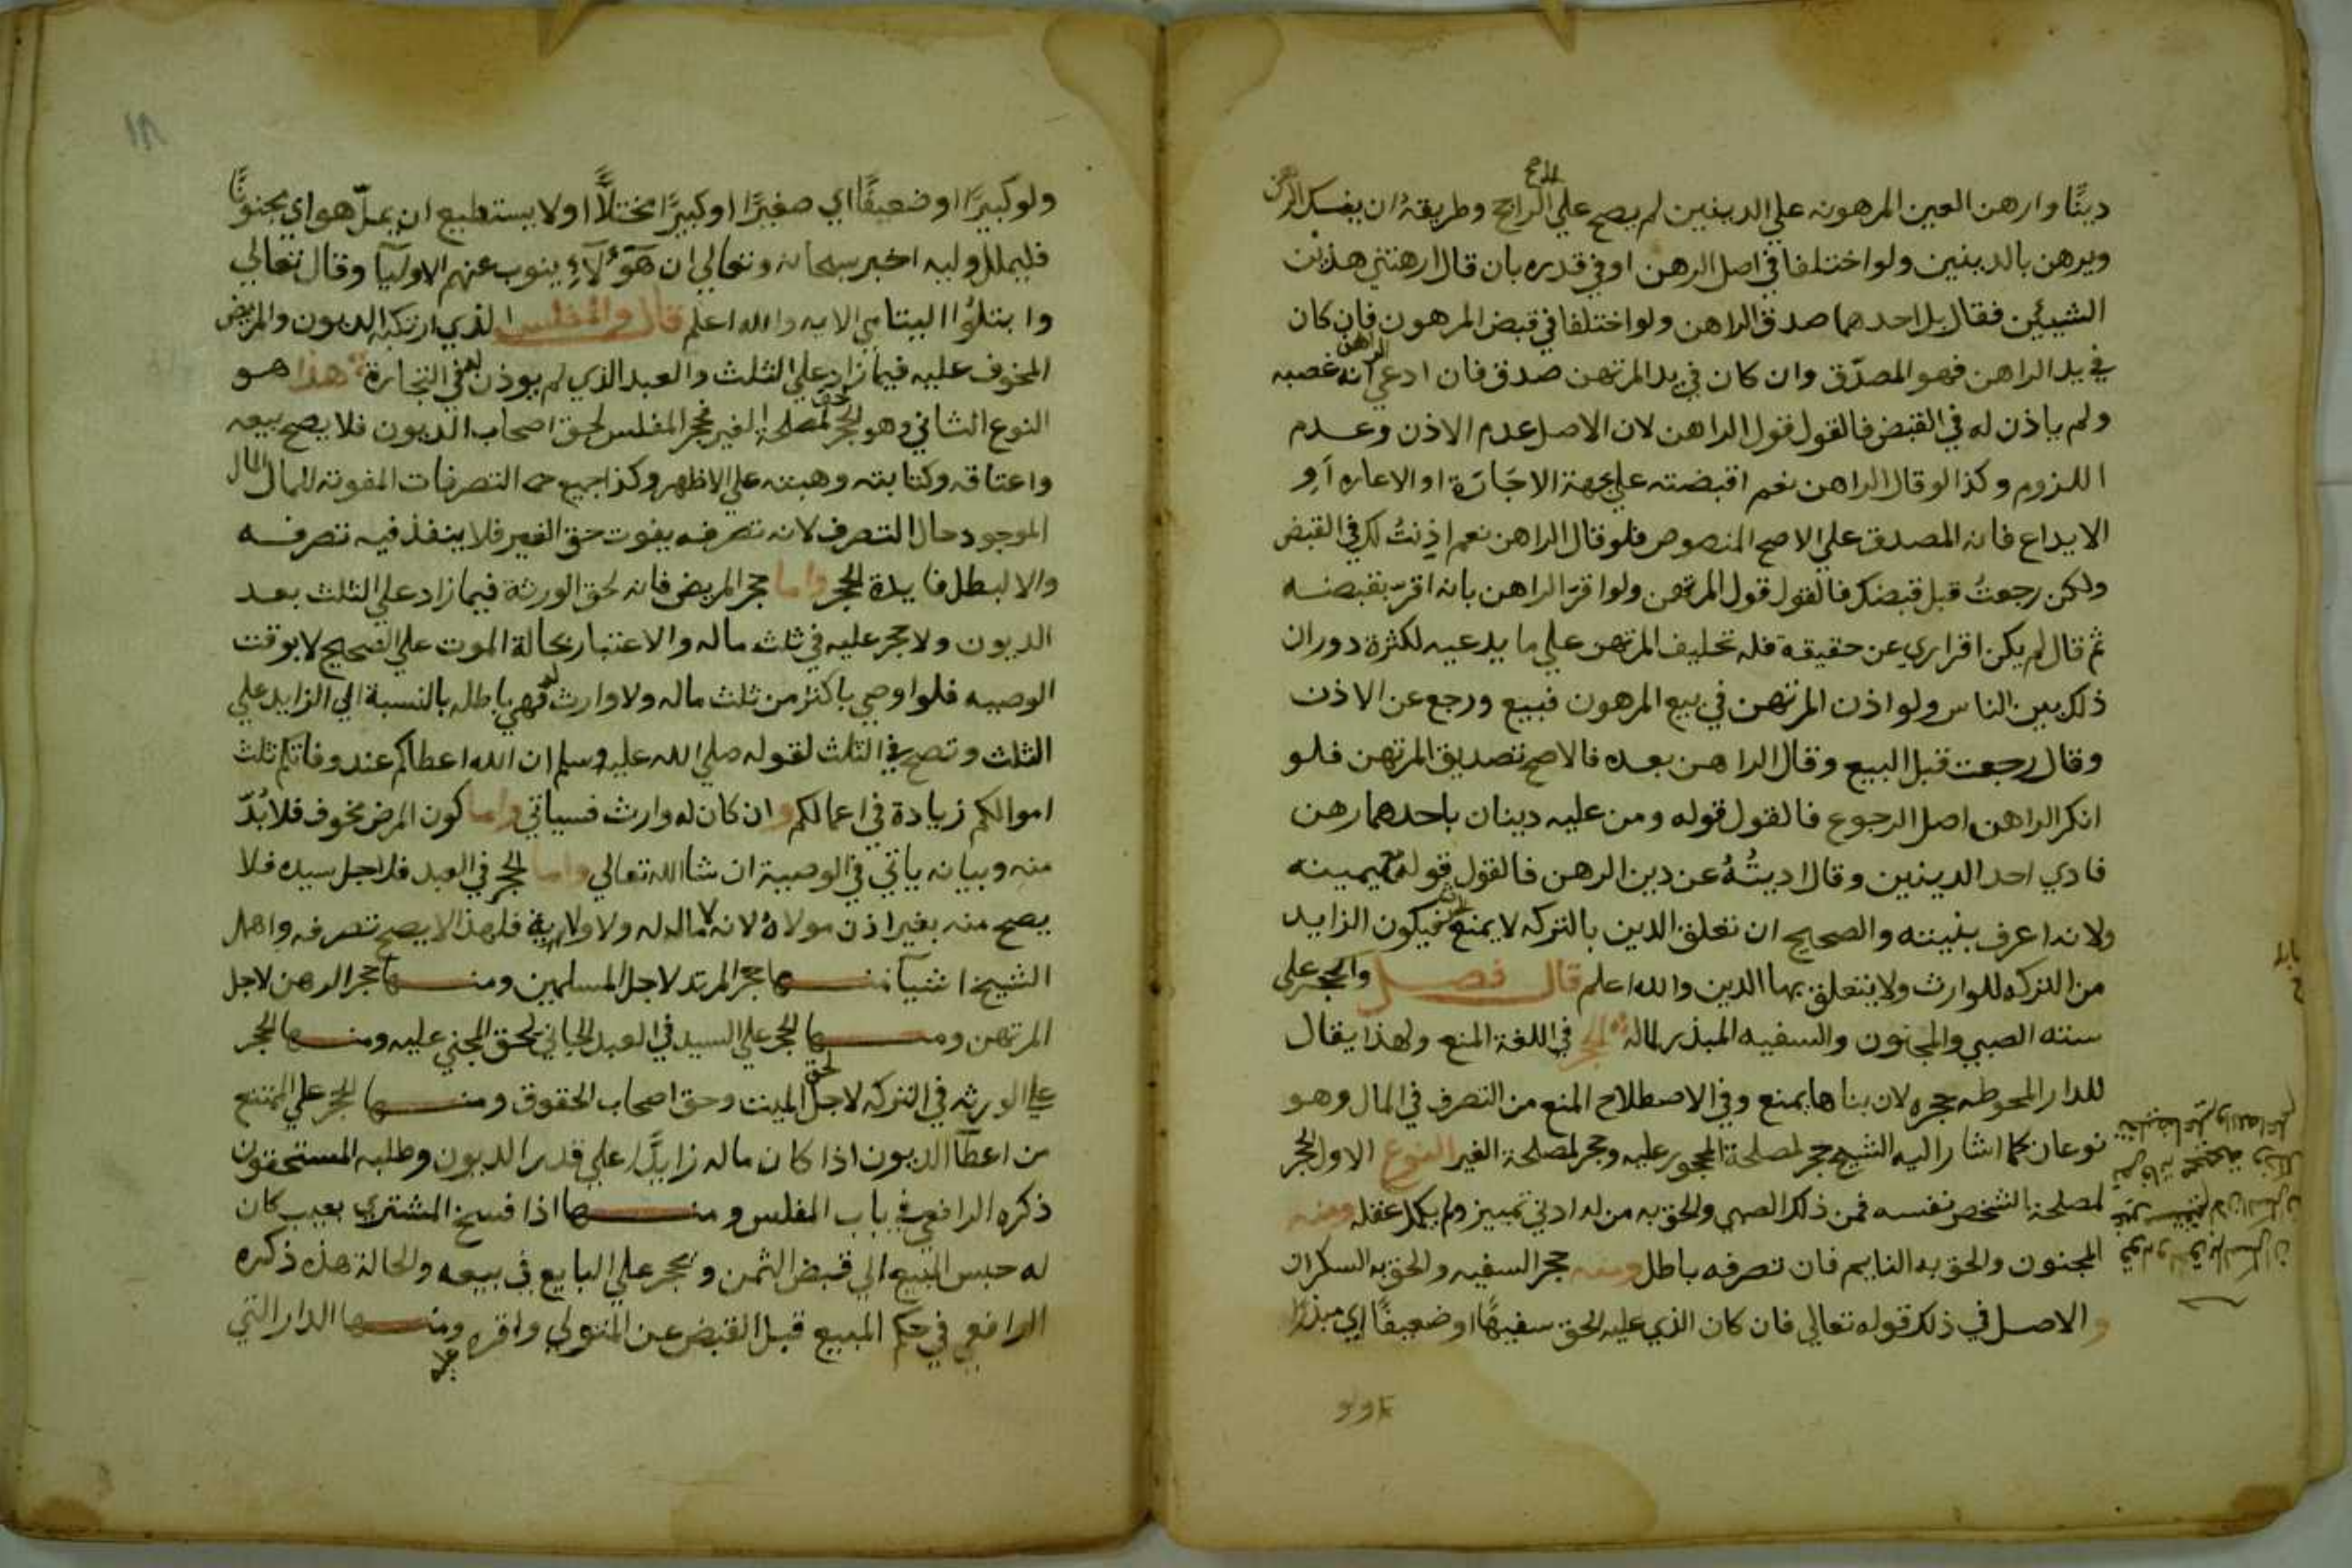 دينًا وارهن العين المرهونه علي الدينين لم يصح علي الراجح وطريقهُ ان يفسك الرهن
ويرهن بالدينين ولو اختلفا في اصل الرهن او في قدره بان قال ارهنتني هذين
الشيئين فقال بل احدهما صدق الراهن ولو اختلفا في قبض المرهون فان كان
في يد الراهن فهو المصدّق وان كان في يد المرتهن صدق فان ادعي الراهن انه غصبه
ولم ياذن له في القبض فالقول قول الراهن لان الاصل عدم الاذن وعدم
اللزوم وكذا لو قال الراهن نعم اقبضته علي جهة الاجَارَة او الاعاره اَو
الايداع فانه المصدق علي الاصح المنصوص فلو قال الراهن نعم اذِنتُ لك في القبض
ولكن رجعتُ قبل قبضك فالقول قول المرتهن ولو اقرّ الراهن بانه اقرّ بقبضه
ثم قال لم يكن اقراري عن حقيقة فله تحليف المرتهن علي ما يدعيه لكثرة دوران
ذلك بين الناس ولو اذن المرتهن في بيع المرهون فبيع ورجع عن الاذن
وقال رجعت قبل البيع وقال الراهن بعده فالاصح تصديق المرتهن فلو
انكر الراهن اصل الرجوع فالقول قوله ومن عليه دينان باحدهما رهن
فادي احد الدينين وقال اديتُهُ عن دين الرهن فالقول قوله بيمينه
ولانه اعرف بنيته والصحيح ان تعلق الدين بالتركه لا يمنع فيكون الزايد
من التركه للوارث ولا يتعلق بها الدين والله اعلم قال فصل والحجر علي
سته الصبي والمجنون والسفيه المبذر لماله الحجر في اللغة المنع ولهذا يقال
للدار المحوطه حجره لان بناها يمنع وفي الاصطلاح المنع من التصرف في المال وهو
نوعان كما اشار اليه الشيخ حجر لمصلحة المحجور عليه وحجر لمصلحة الغير النوع الاول الحجر
لمصلحة الشخص نفسه فمن ذلك الصبي والحق به من له ادني تمييز ولم يكمل عقله ومنه
المجنون والحق به النايم فان تصرفه باطل ومنه حجر السفيه والحق به السكران
والاصل في ذلك قوله تعالي فان كان الذي عليه الحق سفيهًا او ضعيفًا اي مبذرًا
ولو كبيرًا او ضعيفًا اي صغيرًا او كبيرًا مختلًّا او لا يستطيع ان يملّ هو اي مجنونًا
فليملل وليه اخبر سبحانه وتعالي ان هَؤُلَآءِ ينوب عنهم الاوليآ وقال تعالي
وابتلُوا اليتامي الايه والله اعلم قال والمفلس الذي ارتكبه الديون والمريض
المخوف عليه فيما زاد علي الثلث والعبد الذي لم يوذن له في التجارة هذا هو
النوع الثاني وهو الحجر لمصلحة الغير فحجر المفلس لحق اصحاب الديون فلا يصح بيعه
واعتاقه وكتابته وهبته علي الاظهر وكذا جميع التصرفات المفوته للمال
الموجود حال التصرف لانه تصرفه يفوت حق الغير فلا ينفذ فيه تصرفه
والا لبطل فايدة الحجر واما حجر المريض فانه لحق الورثة فيما زاد علي الثلث بعد
الديون ولا حجر عليه في ثلث ماله والاعتبار بحالة الموت علي الصحيح لا بوقت
الوصيه فلو اوصي باكثر من ثلث ماله ولا وارث له فهي باطله بالنسبة الي الزايد علي
الثلث وتصح في الثلث لقوله صلي الله عليه وسلم ان الله اعطاكم عند وفاتكم ثلث
اموالكم زيادة في اعمالكم وان كان له وارث فسياتي واما كون المرض مخوف فلا بُدّ
منه وبيانه ياتي في الوصية ان شا الله تعالي واما الحجر في العبد فلاجل سيده فلا
يصح منه بغير اذن مولاهُ لانه لا مال له ولا ولاية فلهذا لا يصح تصرفه واهمل
الشيخ اشيآ منها حجر المرتد لاجل المسلمين ومنها حجر الرهن لاجل
المرتهن ومنها الحجر علي السيد في العبد الجاني لحق المجني عليه ومنها الحجر
علي الورثه في التركه لاجل حق الميت وحق اصحاب الحقوق ومنها الحجر علي الممتنع
من اعطآ الديون اذا كان ماله زايدًا علي قدر الديون وطلبه المستحقون
ذكره الرافعي في باب المفلس ومنها اذا فسخ المشتري بعيب كان
له حبس المبيع الي قبض الثمن ونحجر علي البايع في بيعه والحالة هذه ذكره
الرافعي في حكم المبيع قبل القبض عن المتولي واقره ومنها الدار التي